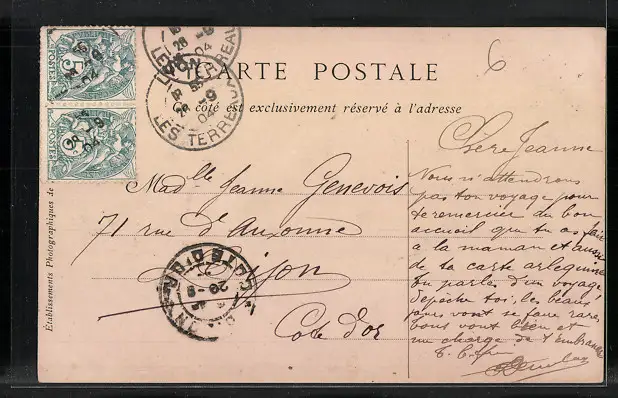 CARTE POSTALE
Ce côté est exclusivement réservé à l'adresse
Établissements Photographiques de
POSTES
5
POSTES
LES TERREAUX
26 -9
04
LES TERREAUX
26 -9
04
6
Madlle Jeanne Genevois
71 rue d'Auxonne
Dijon
Cote d'or
COTE D'OR
Chère Jeanne
Nous n'attendrons
pas ton voyage pour
te remercier du bon
accueil que tu as fait
a la maman et aussi
de ta carte arlequine
Tu parles d'un voyage
dépêche toi, les beaux
jours vont se faire rares
tous vont bien et
me charge de t'embrasser